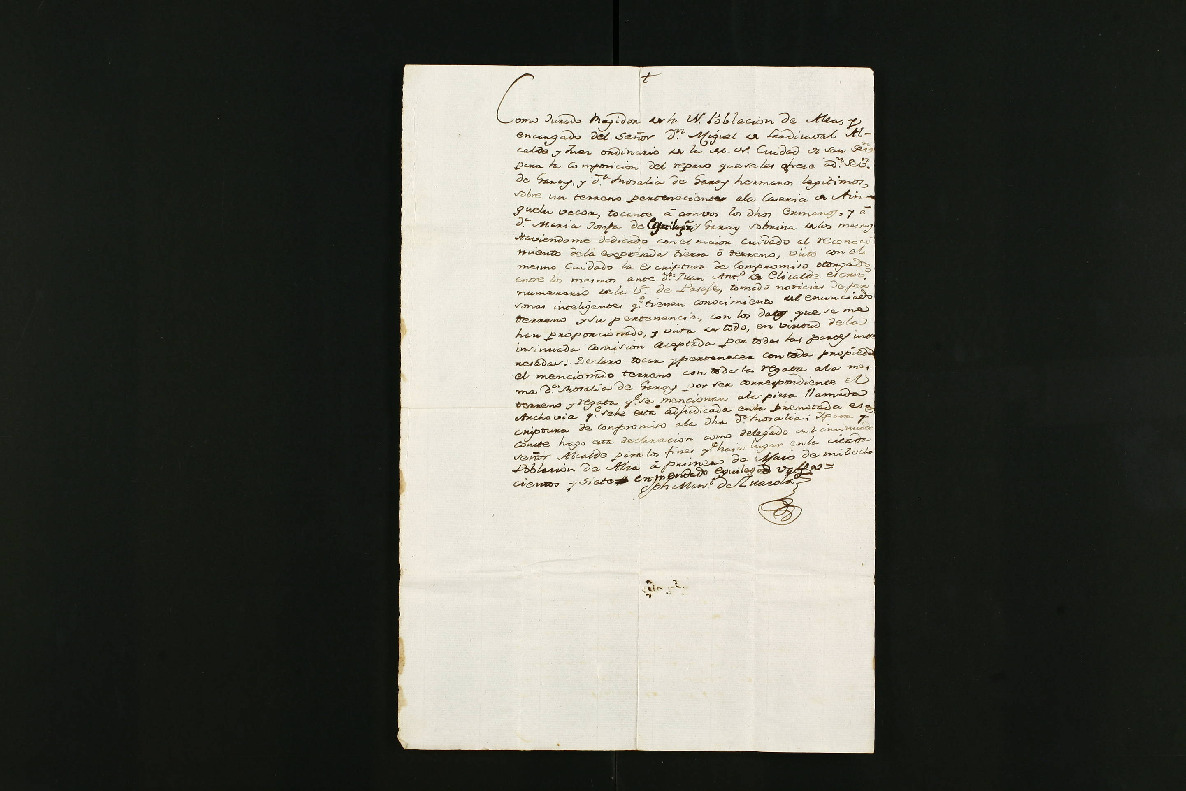 Como Jurado Regidor de la N. Poblacion de Alza, y
encargado del Señor Dn. Miguel de Al-
calde y Juez ordinario de la M. N. Ciudad de San
para la composicion del reparo que se les ofrece a Dn.
de Garay, y Da. Rosalia de Garay hermanos legitimos,
sobre un terreno perteneciente a la Caseria de
tocante á ambos los dhos Ermanos, y á
Da. Maria Josefa de y Garay sobrina de los mesmos
Haviendome dedicado con el maior cuidado al reconoci
miento de la expresada tierra ó terreno, visto con el
mesmo cuidado la escriptura de compromiso otorgado
entre los mesmos ante Dn. Juan Anto. de Elicalde escrno.
numerario de la Va. de Pasage, tomado noticias de per
sonas inteligentes qe. tienen conocimiento del enunciado
terreno y su pertenencia, con los datos que se me
han proporcionado, y vista de todo, en virtud de la
insinuada comision aceptada por todas las partes inte
resadas: Declaro tocar y pertenecer con toda propiedad
el mencionado terreno con toda la regata a la mes
ma Da. Rosalia de Garay por ser correspondiente el
terreno y regata qe. se mencionan a la pieza llamada
qe. se le está adjudicada en la prenotada es
criptura de compromiso a la dha Da. Rosalia: Y para qe.
conste hago esta declaracion como delegado del enunciado
señor Alcalde para los fines qe. haia lugar en la citada
Poblacion de Alza á primero de Maio de mil ocho
cientos y siete enmendado
de